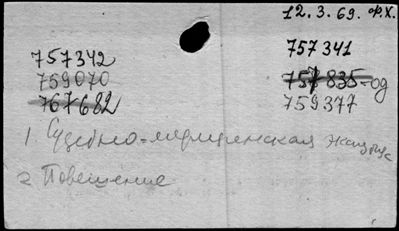 12.3.69. Ф.Х.
757342
759070
767682
757341
757835-од
759377
1. Судебно-медицинская
2. Повешение